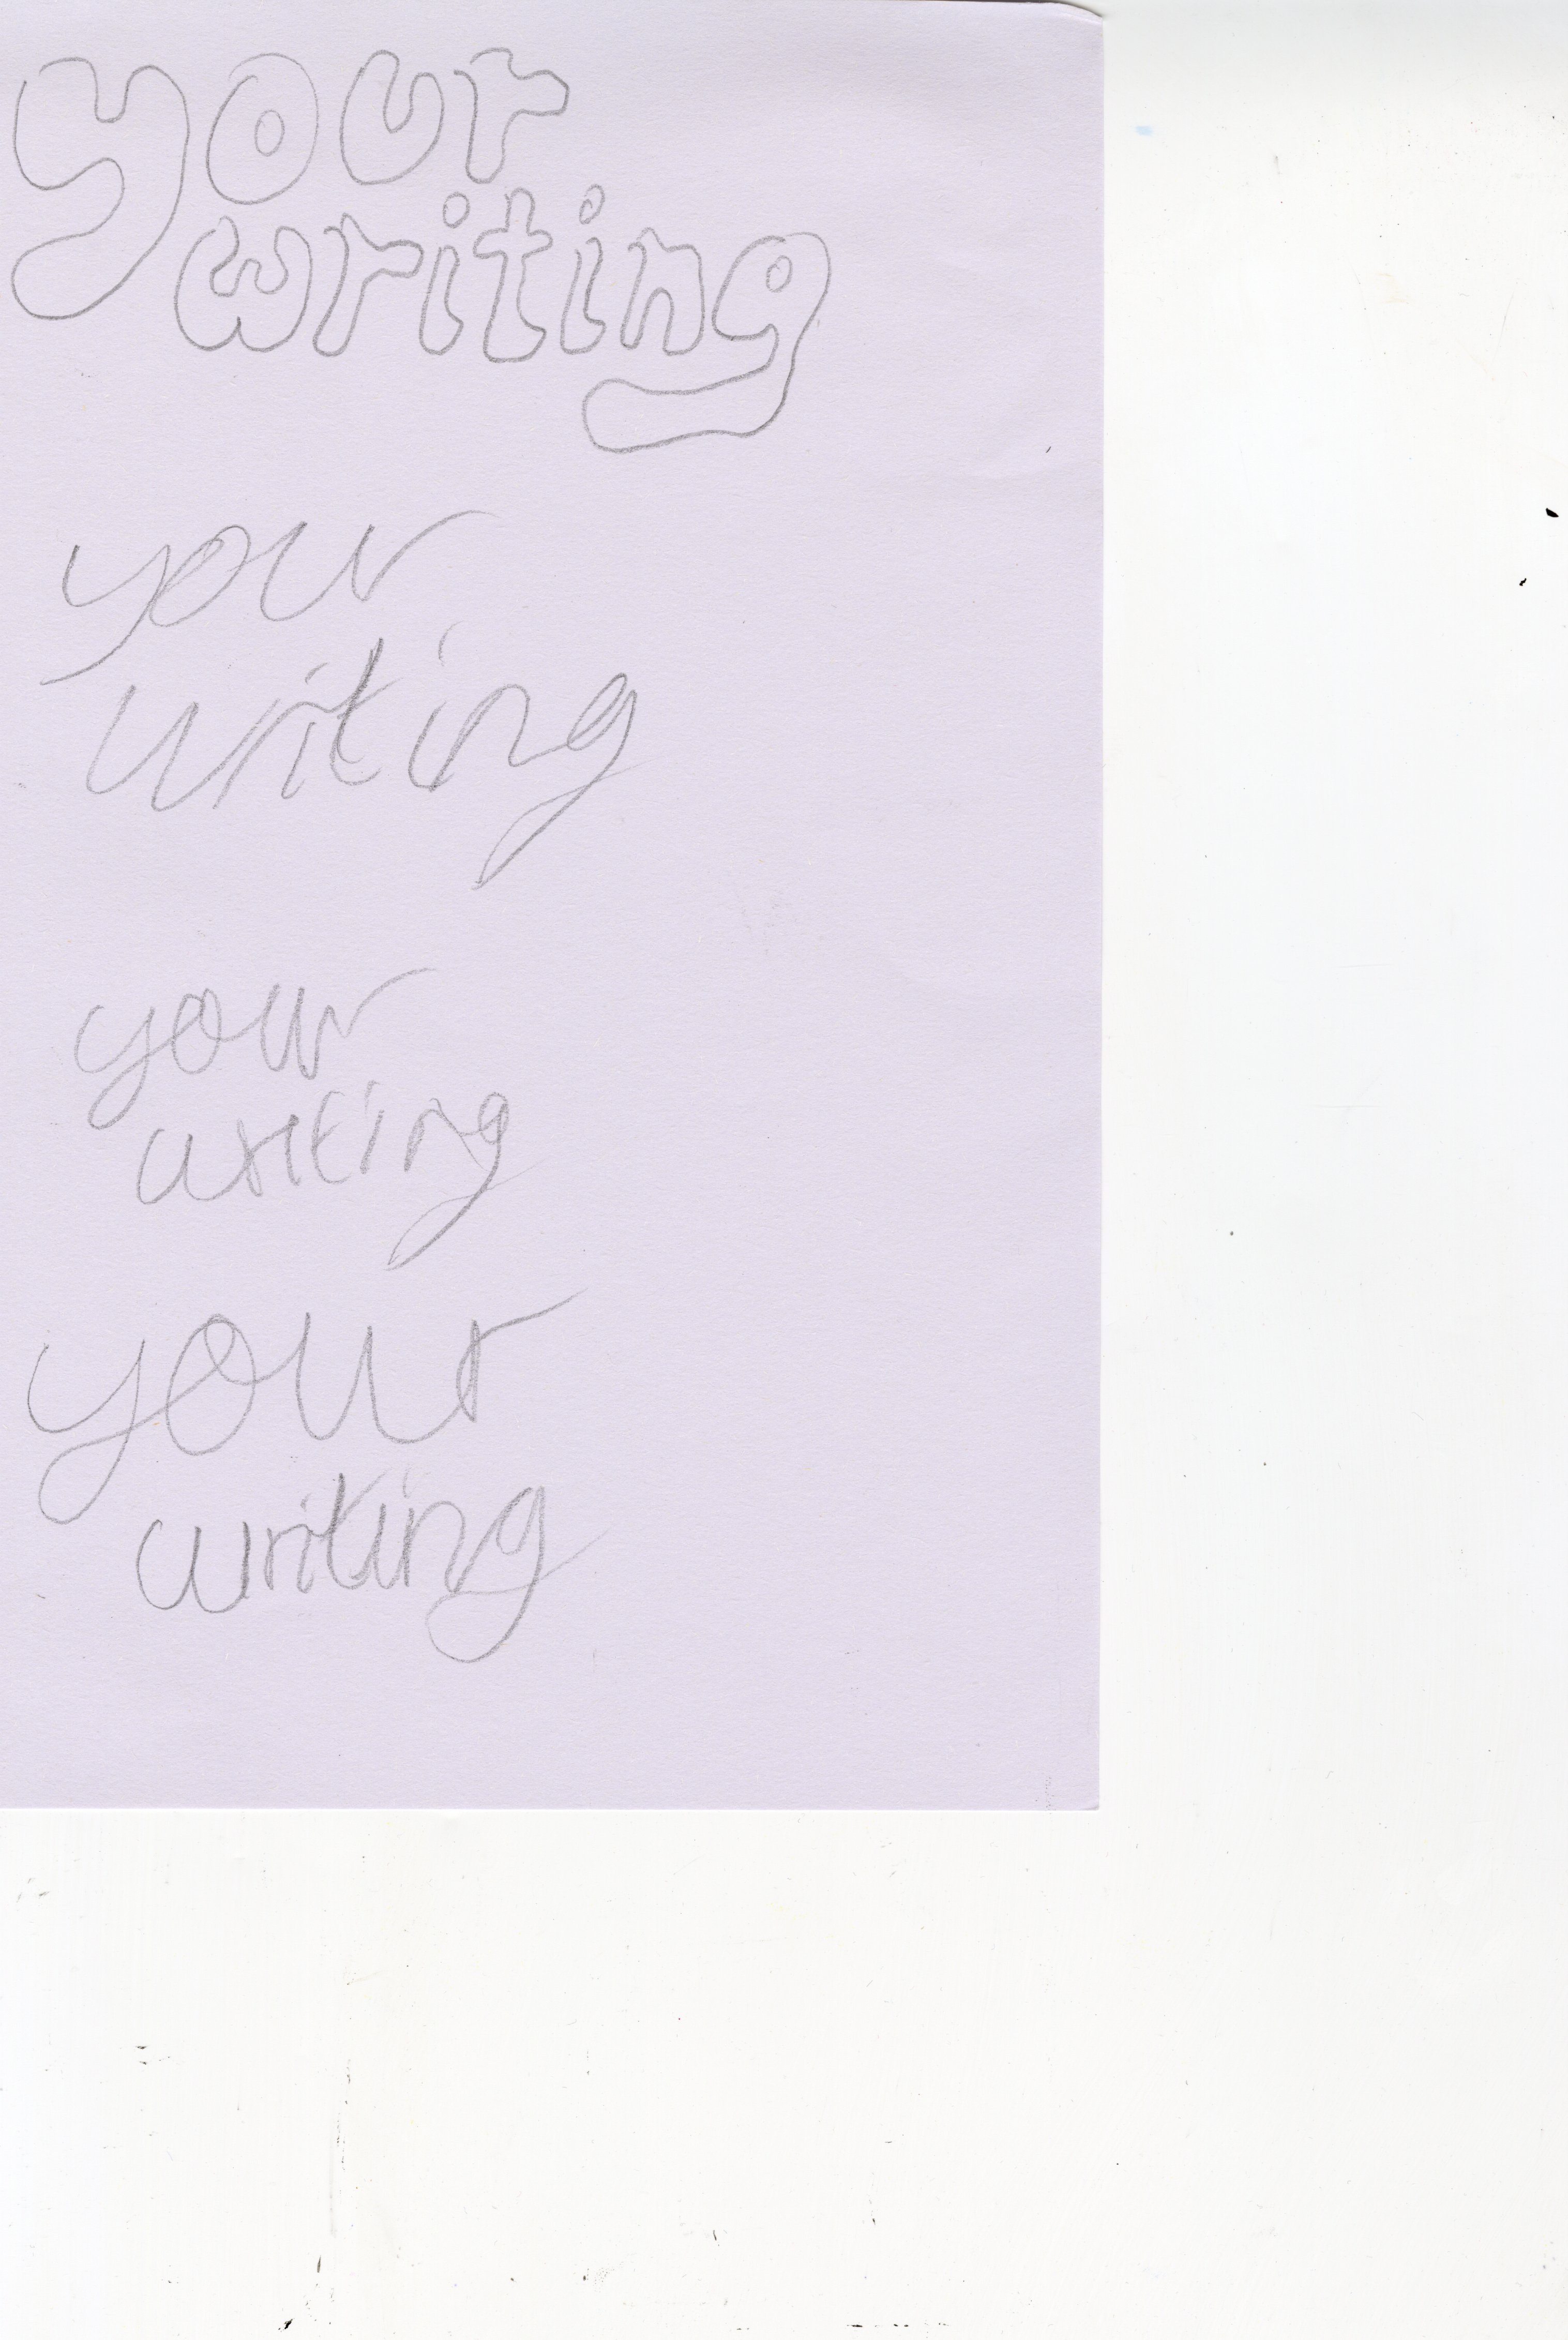 your
writing
your
writing
your
writing
your
writing